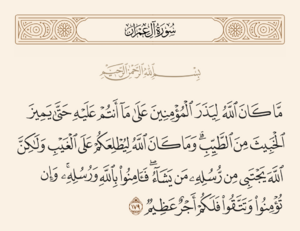 سُورَةُ آلِ عِمْرَانَ
بِسْمِ ٱللَّهِ ٱلرَّحْمَٰنِ ٱلرَّحِيمِ
مَّا كَانَ ٱللَّهُ لِيَذَرَ ٱلْمُؤْمِنِينَ عَلَىٰ مَآ أَنتُمْ عَلَيْهِ حَتَّىٰ يَمِيزَ
ٱلْخَبِيثَ مِنَ ٱلطَّيِّبِ ۗ وَمَا كَانَ ٱللَّهُ لِيُطْلِعَكُمْ عَلَى ٱلْغَيْبِ وَلَٰكِنَّ
ٱللَّهَ يَجْتَبِى مِن رُّسُلِهِۦ مَن يَشَآءُ ۖ فَـَٔامِنُوا۟ بِٱللَّهِ وَرُسُلِهِۦ ۚ وَإِن
تُؤْمِنُوا۟ وَتَتَّقُوا۟ فَلَكُمْ أَجْرٌ عَظِيمٌ ١٧٩